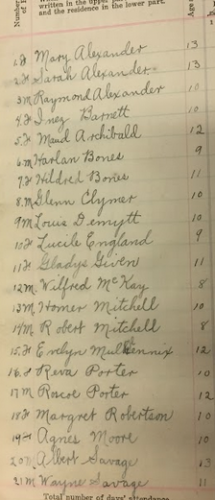 written in the upper
and the residence in the lower part.
Number
Age
1 F Mary Alexander 13
2 F Sarah Alexander 13
3 M Raymond Alexander 10
4 F Inez Barnett 10
5 F Maud Archibald 12
6 M Harlan Bones 9
7 F Hildred Bones 11
8 M Glenn Clymer 10
9 M Louis Demytt 10
10 F Lucile England 9
11 F Gladys Given 11
12 M. Wilfred McKay 8
13 M Homer Mitchell 10
14 M Robert Mitchell 8
15 F Evelyn Mullennix 12
16 F Reva Porter 10
17 M Roscoe Porter 12
18 F Margret Robertson 10
19 F Agnes Moore 10
20 M Albert Savage 13
21 M Wayne Savage 11
Total number of days' attendance